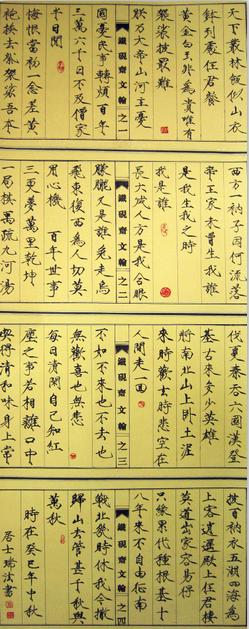 天下叢林飯似山衣
鉢到處任君餐
黃金白玉非為貴唯有
袈裟披最難
朕乃大地山河主憂
鐵硯齋文翰 之一
國憂民事轉煩百年
三萬六千日不及僧家
半日閒
悔恨當初一念差黃
袍換去紫袈裟吾本
西方衲子因何流落
帝王家未曾生我誰
是我生我之時
我是誰
長大成人方是我合眼
鐵硯齋文翰 之二
朦朧又是誰兔走烏
飛東復西為人切莫
用心機 百年世事
三更夢萬里乾坤
一局棋禹疏九河湯
伐夏秦吞六國漢登
基古來多少英雄
將南北山上臥土泥
來時歡喜去時悲空在
人間走一回
鐵硯齋文翰 之三
不如不來也不去也
無歡喜也無悲
每日清閒自己知紅
塵之事若相離口中
吃得清和味身上常
披百衲衣五湖四海為
上客逍遙殿上任君棲
莫道出家容易得
只緣累代種根基十
八年來不自由征南
鐵硯齋文翰 之四
戰北幾時休我今撒手
歸山去管甚千秋與
萬秋
時在癸巳年中秋
居士瑞法書